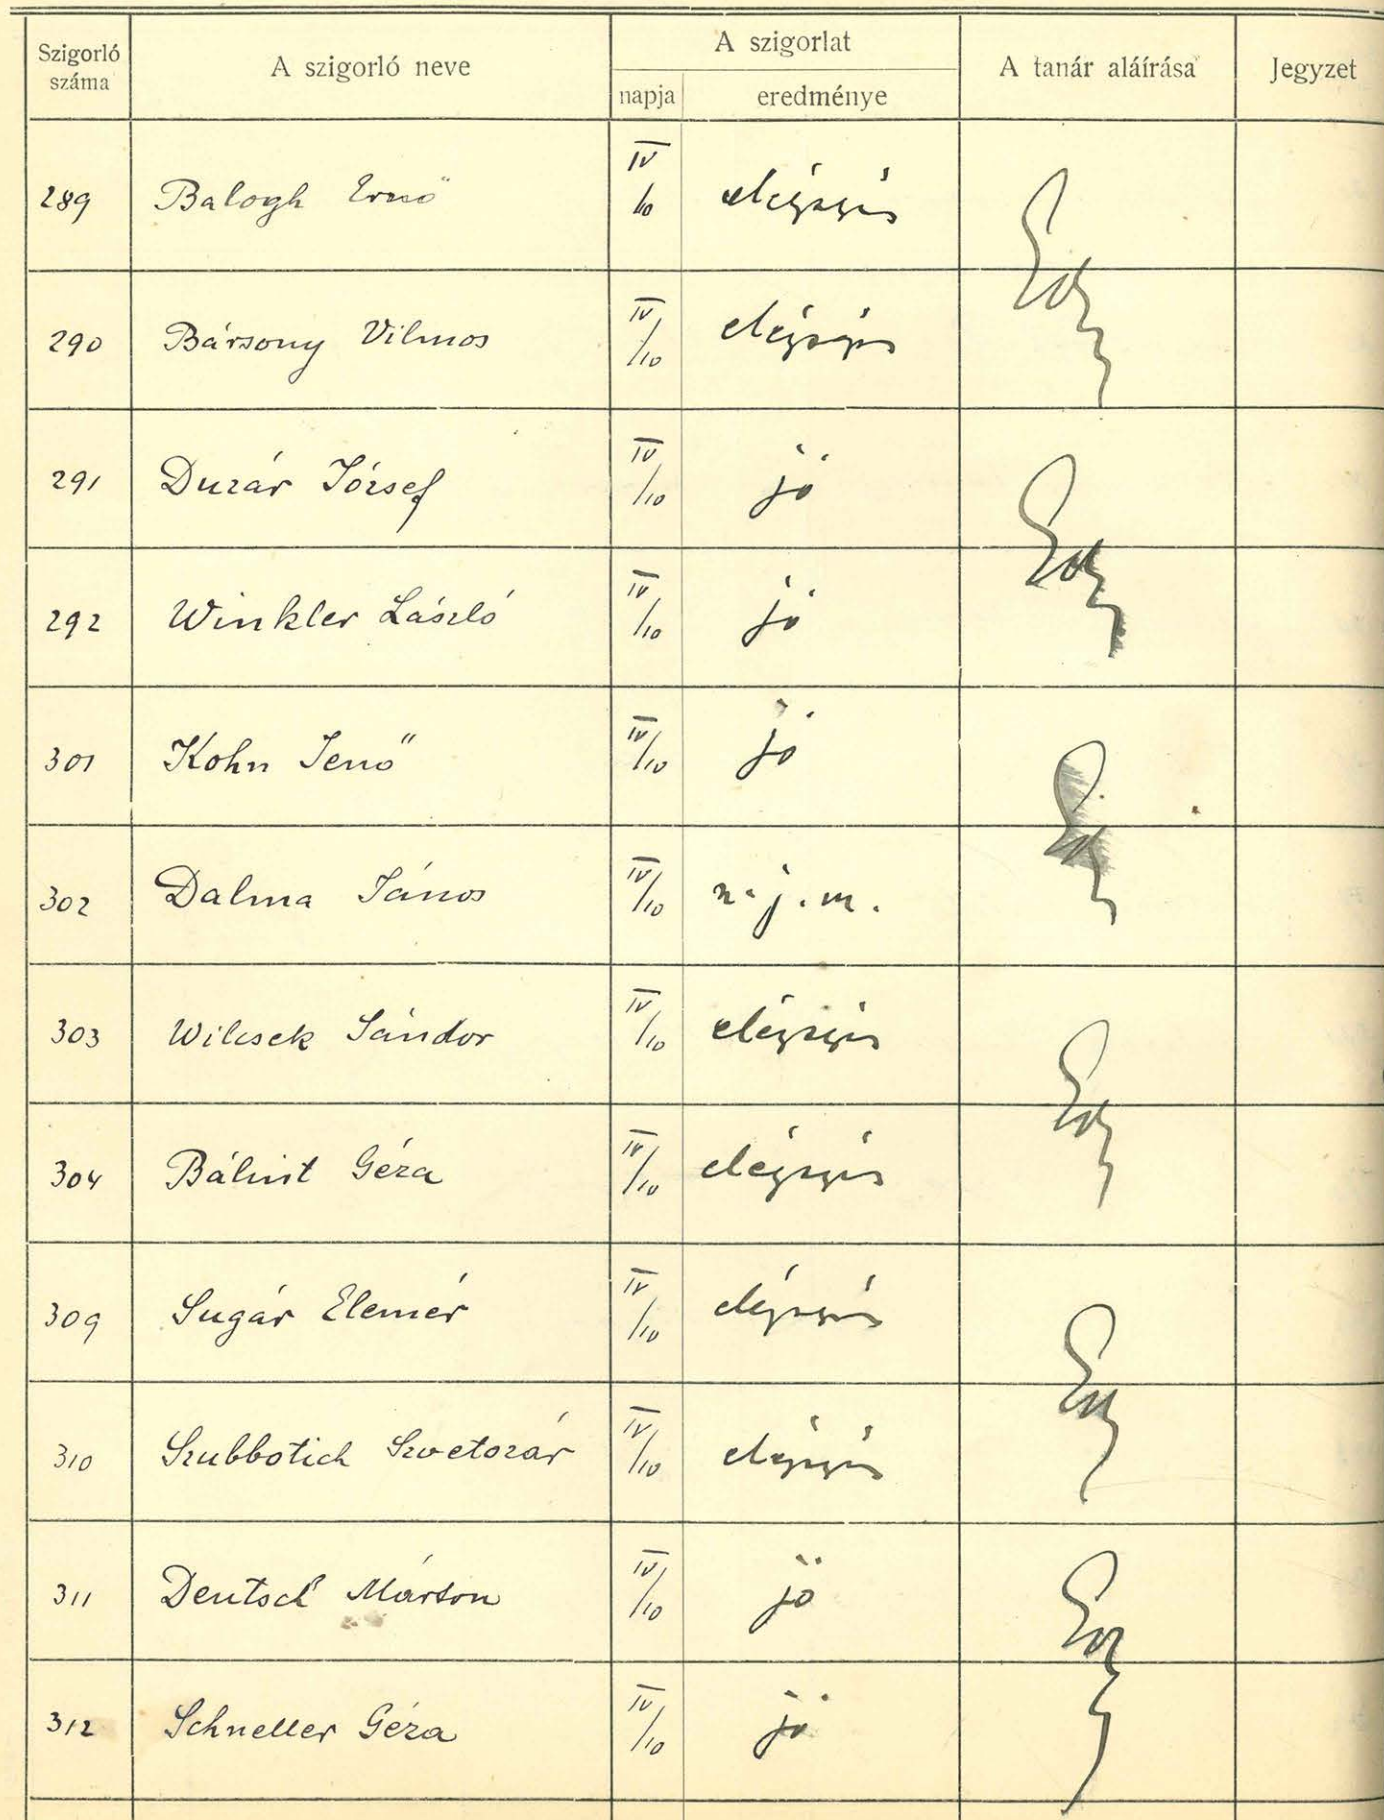 Szigorló száma A szigorló neve A szigorlat napja eredménye A tanár aláírása Jegyzet
289 Balogh Ernő IV/10 elégséges
290 Bársony Vilmos IV/10 elégséges
291 Duzár József IV/10 jó
292 Winkler László IV/10 jó
301 Kohn Jenő IV/10 jó
302 Dalma János IV/10 n. j. m.
303 Wilcsek Sándor IV/10 elégséges
304 Bálint Géza IV/10 elégséges
309 Sugár Elemér IV/10 elégséges
310 Szubbotich Szvetozár IV/10 elégséges
311 Deutsch Márton IV/10 jó
312 Schneller Géza IV/10 jó